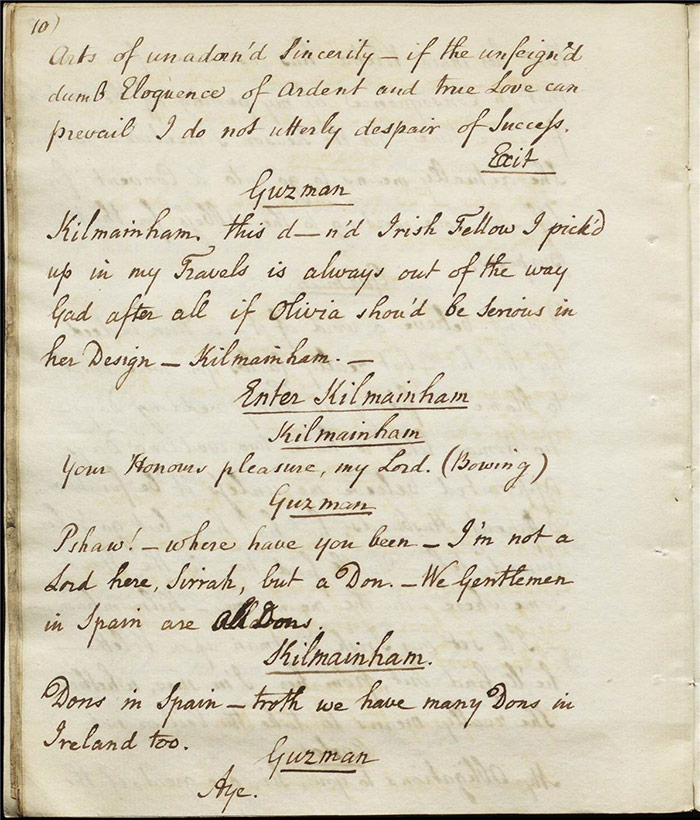 10)
Arts of unadorn'd Sincerity – if the unfeign'd
dumb Eloquence of Ardent and true Love can
prevail I do not utterly despair of Succeſs.
Exit
Guzman
Kilmainham. this d–n'd Irish Fellow I pick'd
up in my Travels is always out of the way
Gad after all if Olivia shou'd be Serious in
her Design – Kilmainham. –
Enter Kilmainham
Kilmainham
Your Honours pleasure, my Lord. (Bowing)
Guzman
Pshaw! – where have you been – I'm not a
Lord here, Sirrah, but a Don. – We Gentlemen
in Spain are all Dons.
Kilmainham.
Dons in Spain – troth we have many Dons in
Ireland too.
Guzman
Aye.